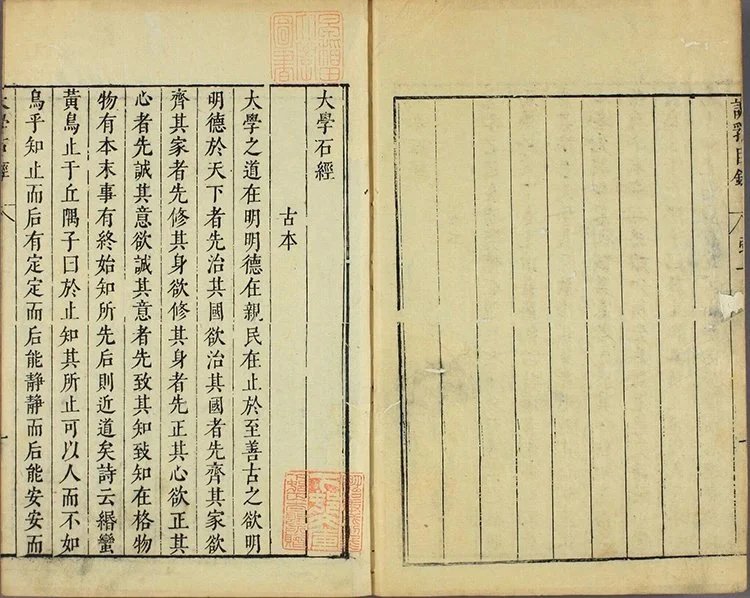 說郛目錄
大學石經
古本
大學之道在明明德在親民在止於至善古之欲明
明德於天下者先治其國欲治其國者先齊其家欲
齊其家者先修其身欲修其身者先正其心欲正其
心者先誠其意欲誠其意者先致其知致知在格物
物有本末事有終始知所先后則近道矣詩云緡蠻
黃鳥止于丘隅子曰於止知其所止可以人而不如
鳥乎知止而后有定定而后能靜靜而后能安安而
大學石經